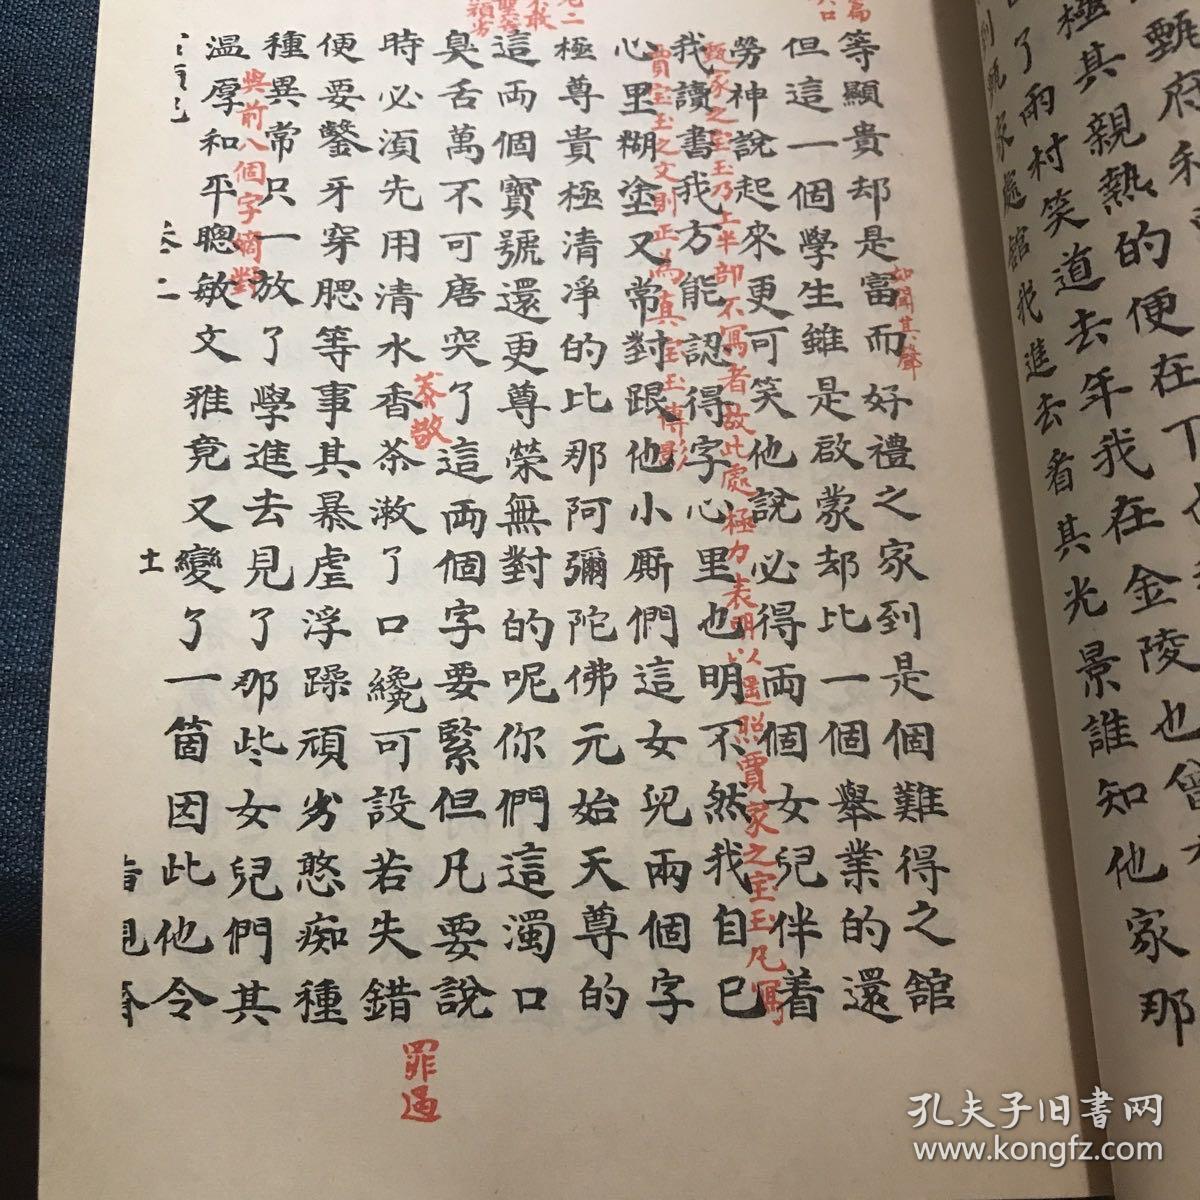 甄府
極其親熱的便在下
了雨村笑道去年我在金陵也曾
家處館我進去看其光景誰知他家那
等顯貴却是富而好禮之家到是個難得之舘
但這一個學生雖是啟蒙却比一個舉業的還
勞神說起來更可笑他說必得両個女兒伴着
我讀書我方能認得字心里也明不然我自已
心里糊塗又常對跟他小厮們這女兒両個字
極尊貴極清凈的比那阿彌陀佛元始天尊的
這両個寶號還更尊榮無對的呢你們這濁口
臭舌萬不可唐突了這両個字要緊但凡要說
時必須先用清水香茶漱了口纔可設若失錯
便要鑿牙穿腮等事其暴虐浮躁頑劣憨痴種
種異常只一放了學進去見了那些女兒們其
溫厚和平聰敏文雅竟又變了一箇因此他令
卷二
土
如聞其聲
甄家之宝玉乃上半部不寫者故此處極力表明以遥照賈家之宝玉凡寫
賈宝玉之文則正為真宝玉傳影
恭敬
罪過
與前八個字嫡對
孔夫子旧書网
www.kongfz.com